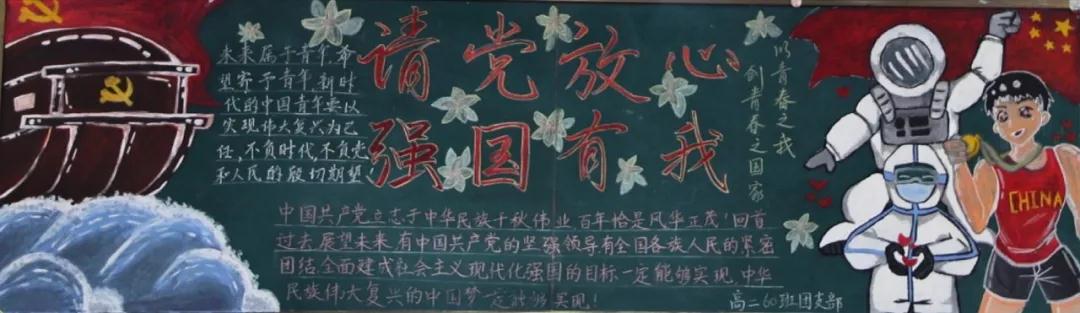 请党放心
强国有我
未来属于青年,希
望寄予青年,新时
代的中国青年要以
实现伟大复兴为己
任,不负时代,不负党
和人民的殷切期望!
以青春之我
创青春之国家
中国共产党立志于中华民族千秋伟业,百年恰是风华正茂!回首
过去,展望未来,有中国共产党的坚强领导有全国各族人民的紧密
团结,全面建成社会主义现代化强国的目标一定能够实现,中华
民族伟大复兴的中国梦一定能够实现!
高二60班团支部
CHINA